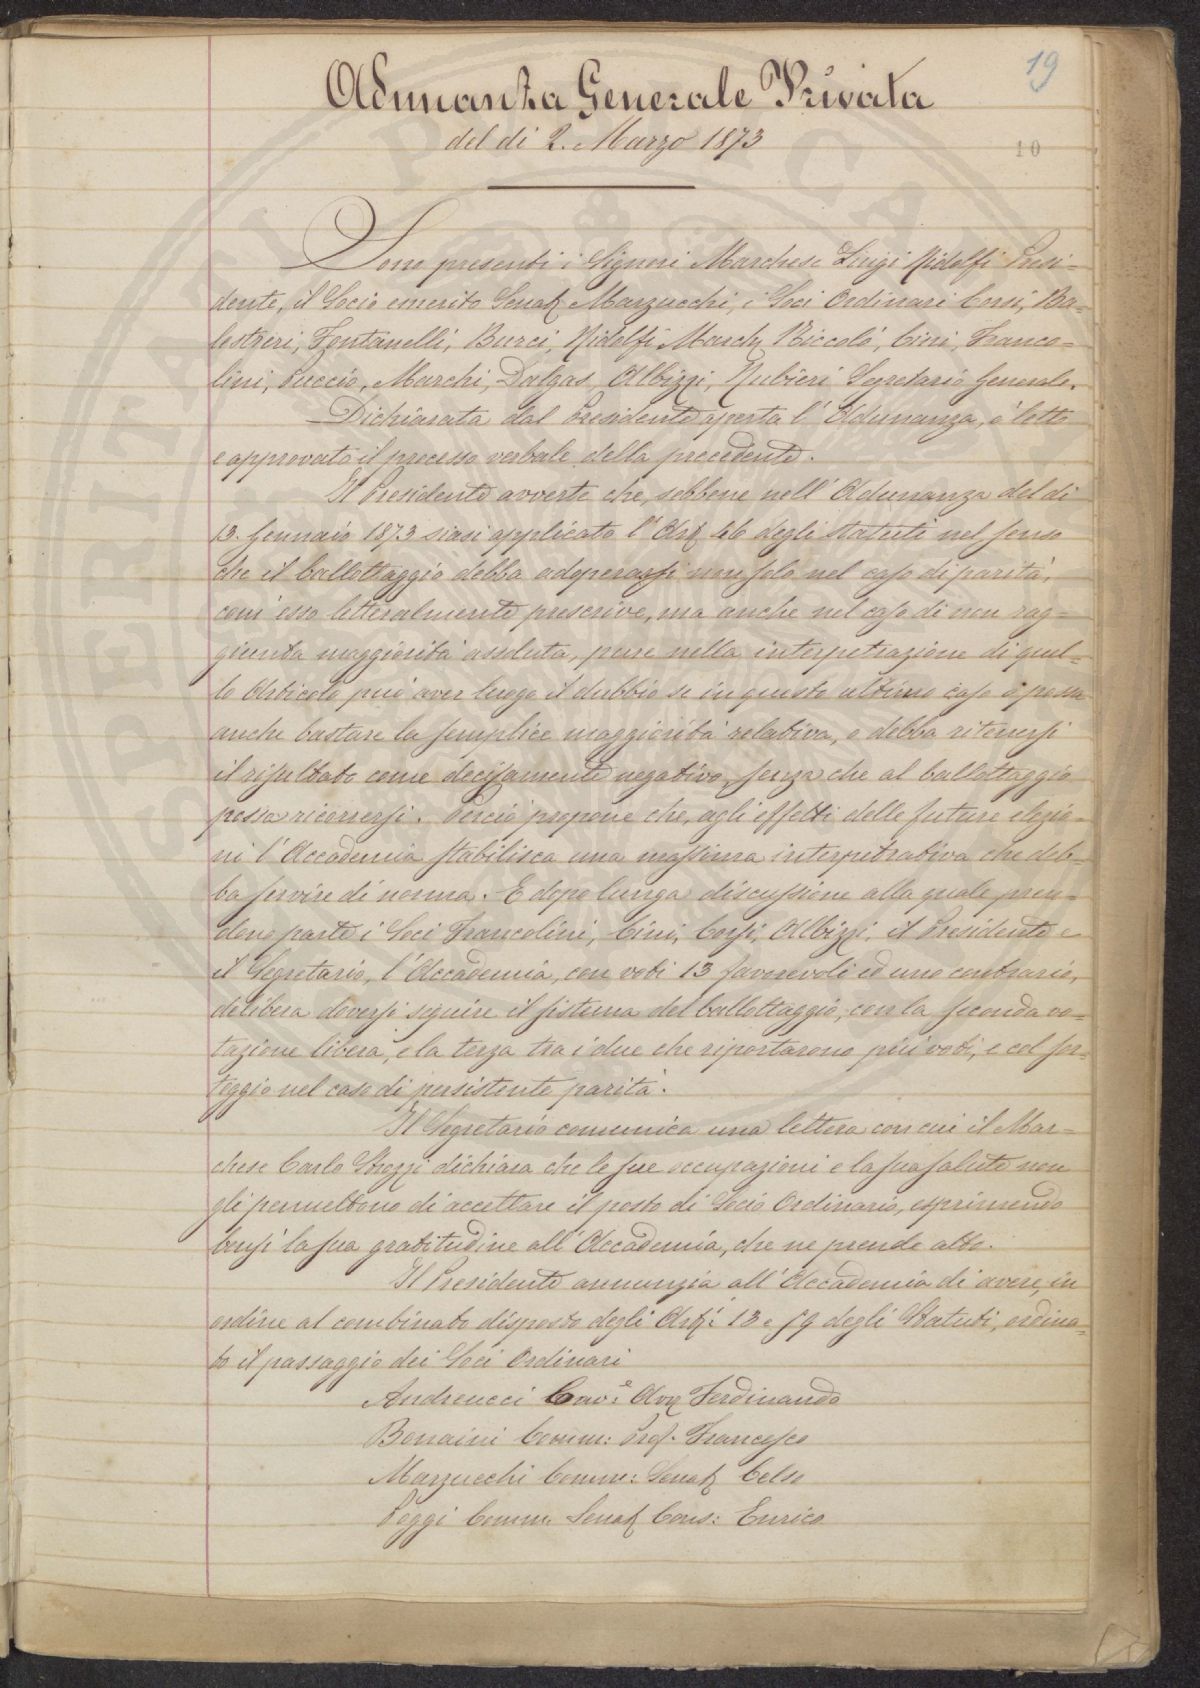 19
Adunanza Generale Privata
del di 2. Marzo 1873
10
Sono presenti i Signori Marchese Luigi Ridolfi Presi-
dente, il Socio emerito Senat. Marzucchi, i Soci Ordinari Corsi, Ba-
lestrieri, Fontanelli, Burci, Ridolfi March. Niccolò, Cini, Franco-
lini, Puccio, Marchi, Dalgas, Albizzi, Rubieri Segretario Generale.
Dichiarata dal Presidente aperta l'Adunanza, è letto
e approvato il processo verbale della precedente.
Il Presidente avverte che, sebbene nell'Adunanza del di
13. Gennaio 1873 siasi applicato l'Art. 46 degli Statuti nel senso
che il ballottaggio debba adoperarsi non solo nel caso di parità,
com'esso letteralmente prescrive, ma anche nel caso di non rag-
giunta maggiorità assoluta, pure nella interpetrazione di quel-
lo Articolo può aver luogo il dubbio se in questo ultimo caso o possa
anche bastare la semplice maggiorità relativa, o debba ritenersi
il risultato come decisamente negativo, senza che al ballottaggio
possa ricorrersi. Perciò propone che, agli effetti delle future elezio-
ni l'Accademia stabilisca una massima interpetrativa che deb-
ba servire di norma. E dopo lunga discussione alla quale pren-
dono parte i Soci Francolini, Cini, Corsi, Albizzi, il Presidente e
il Segretario, l'Accademia, con voti 13 favorevoli ed uno contrario,
delibera doversi seguire il sistema del ballottaggio, con la seconda vo-
tazione libera, e la terza tra i due che riportarono più voti, e col sor-
teggio nel caso di persistente parità.
Il Segretario comunica una lettera con cui il Mar-
chese Carlo Strozzi dichiara che le sue occupazioni e la sua salute non
gli permettono di accettare il posto di Socio Ordinario, esprimendo
bensì la sua gratitudine all'Accademia, che ne prende atto.
Il Presidente annunzia all'Accademia di avere, in
ordine al combinato disposto degli Art.i 13 e 59 degli Statuti, ordina-
to il passaggio dei Soci Ordinari
Andreucci Cav.e Avv. Ferdinando
Bonaini Comm: Prof. Francesco
Marzucchi Comm: Senat. Celso
Poggi Comm. Senat. Cons: Enrico